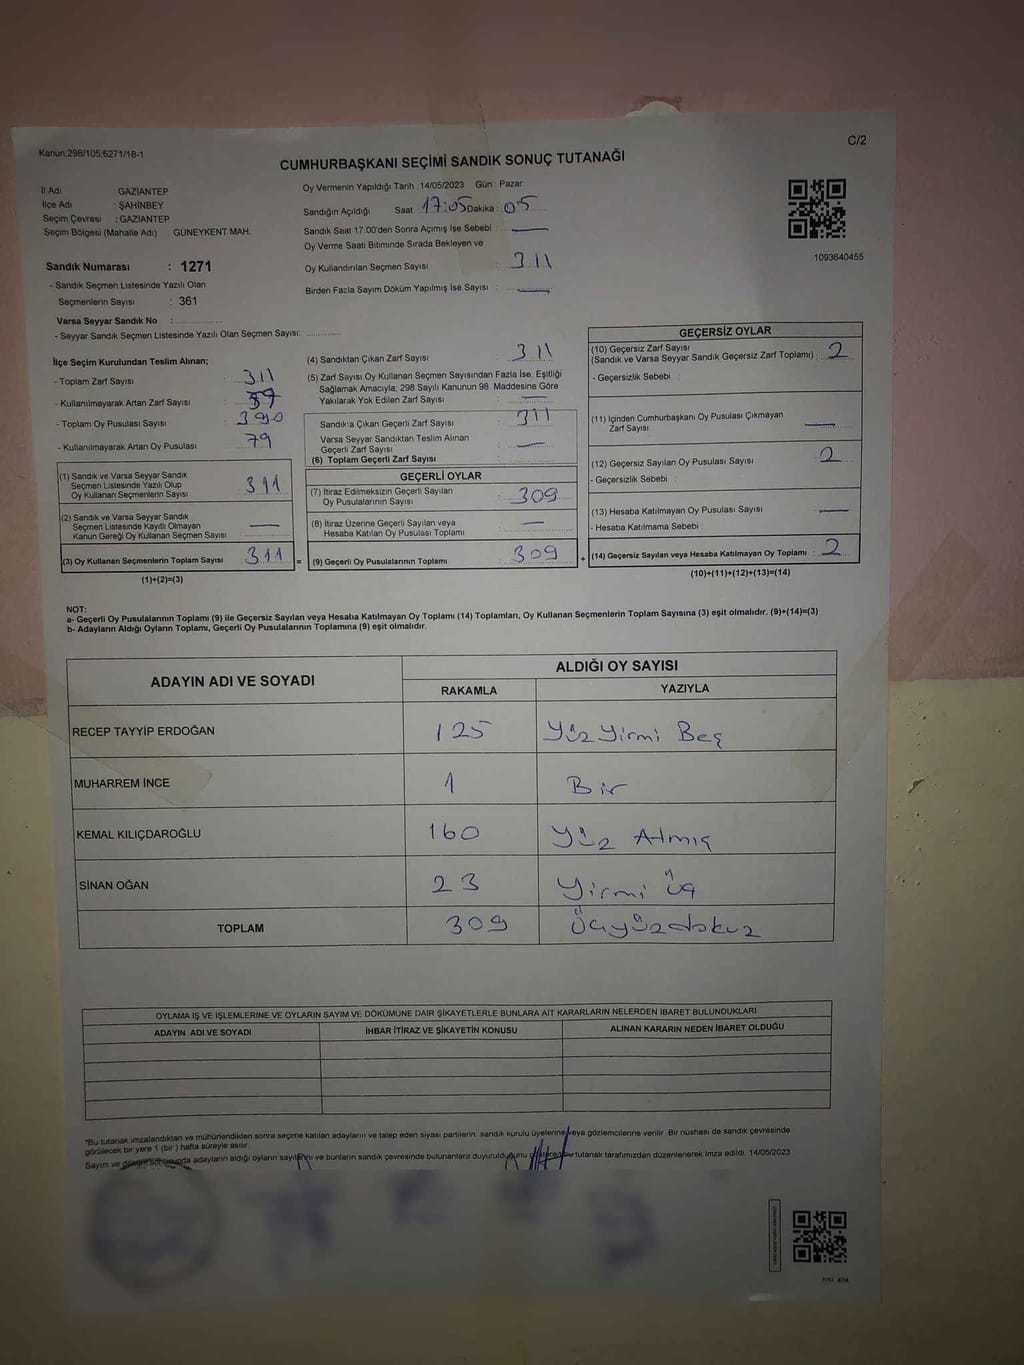 Kanun:298/105;6271/18-1
C/2
CUMHURBAŞKANI SEÇİMİ SANDIK SONUÇ TUTANAĞI
İl Adı GAZİANTEP
İlçe Adı : ŞAHİNBEY
Seçim Çevresi : GAZİANTEP
Seçim Bölgesi (Mahalle Adı) GÜNEYKENT MAH.
Sandık Numarası : 1271
- Sandık Seçmen Listesinde Yazılı Olan
Seçmenlerin Sayısı : 361
Varsa Seyyar Sandık No :
- Seyyar Sandık Seçmen Listesinde Yazılı Olan Seçmen Sayısı:
Oy Vermenin Yapıldığı Tarih : 14/05/2023 Gün : Pazar
Sandığın Açıldığı Saat : 17:05 Dakika : 05
Sandık Saat 17:00'den Sonra Açımış İse Sebebi :
Oy Verme Saati Bitiminde Sırada Bekleyen ve
Oy Kullandırılan Seçmen Sayısı : 311
Birden Fazla Sayım Döküm Yapılmış İse Sayısı :
1093640455
İlçe Seçim Kurulundan Teslim Alınan;
- Toplam Zarf Sayısı : 311
- Kullanılmayarak Artan Zarf Sayısı :
- Toplam Oy Pusulası Sayısı : 390
- Kullanılmayarak Artan Oy Pusulası : 79
(1) Sandık ve Varsa Seyyar Sandık
Seçmen Listesinde Yazılı Olup
Oy Kullanan Seçmenlerin Sayısı : 311
(2) Sandık ve Varsa Seyyar Sandık
Seçmen Listesinde Kayıtlı Olmayan
Kanun Gereği Oy Kullanan Seçmen Sayısı :
(3) Oy Kullanan Seçmenlerin Toplam Sayısı : 311 =
(1)+(2)=(3)
(4) Sandıktan Çıkan Zarf Sayısı : 311
(5) Zarf Sayısı Oy Kullanan Seçmen Sayısından Fazla İse, Eşitliği
Sağlamak Amacıyla, 298 Sayılı Kanunun 98. Maddesine Göre
Yakılarak Yok Edilen Zarf Sayısı :
Sandıkta Çıkan Geçerli Zarf Sayısı : 311
Varsa Seyyar Sandıktan Teslim Alınan
Geçerli Zarf Sayısı :
(6) Toplam Geçerli Zarf Sayısı :
GEÇERLİ OYLAR
(7) İtiraz Edilmeksizin Geçerli Sayılan
Oy Pusulalarının Sayısı : 309
(8) İtiraz Üzerine Geçerli Sayılan veya
Hesaba Katılan Oy Pusulası Toplamı :
(9) Geçerli Oy Pusulalarının Toplamı : 309 +
GEÇERSİZ OYLAR
(10) Geçersiz Zarf Sayısı
(Sandık ve Varsa Seyyar Sandık Geçersiz Zarf Toplamı) : 2
- Geçersizlik Sebebi :
(11) İçinden Cumhurbaşkanı Oy Pusulası Çıkmayan
Zarf Sayısı :
(12) Geçersiz Sayılan Oy Pusulası Sayısı : 2
- Geçersizlik Sebebi :
(13) Hesaba Katılmayan Oy Pusulası Sayısı :
- Hesaba Katılmama Sebebi :
(14) Geçersiz Sayılan veya Hesaba Katılmayan Oy Toplamı : 2
(10)+(11)+(12)+(13)=(14)
NOT:
a- Geçerli Oy Pusulalarının Toplamı (9) ile Geçersiz Sayılan veya Hesaba Katılmayan Oy Toplamı (14) Toplamları, Oy Kullanan Seçmenlerin Toplam Sayısına (3) eşit olmalıdır. (9)+(14)=(3)
b- Adayların Aldığı Oyların Toplamı, Geçerli Oy Pusulalarının Toplamına (9) eşit olmalıdır.
ADAYIN ADI VE SOYADI ALDIĞI OY SAYISI
RAKAMLA YAZIYLA
RECEP TAYYİP ERDOĞAN 125 Yüz Yirmi Beş
MUHARREM İNCE 1 Bir
KEMAL KILIÇDAROĞLU 160 Yüz Atmış
SİNAN OĞAN 23 Yirmi Üç
TOPLAM 309 Üçyüzdokuz
OYLAMA İŞ VE İŞLEMLERİNE VE OYLARIN SAYIM VE DÖKÜMÜNE DAİR ŞİKAYETLERLE BUNLARA AİT KARARLARIN NELERDEN İBARET BULUNDUKLARI
ADAYIN ADI VE SOYADI İHBAR İTİRAZ VE ŞİKAYETİN KONUSU ALINAN KARARIN NEDEN İBARET OLDUĞU
*Bu tutanak imzalandıktan ve mühürlendikten sonra seçime katılan adayların ve talep eden siyasi partilerin sandık kurulu üyelerine veya gözlemcilerine verilir. Bir nüshası da sandık çevresinde
görülecek bir yere 1 (bir) hafta süreyle asılır.
Sayım ve döküm sonucunda adayların aldığı oyların sayılarını ve bunların sandık çevresinde bulunanlara duyurulduğunu gösteren bu tutanak tarafımızdan düzenlenerek imza edildi. 14/05/2023